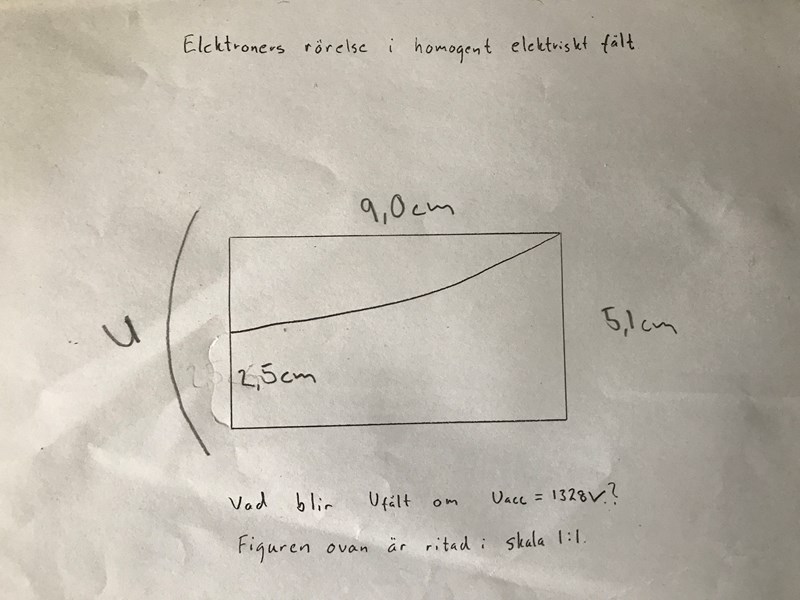 Elektroners rörelse i homogent elektriskt fält
9,0cm
U
5,1cm
2,5cm
Vad blir Ufält om Uacc = 1328V?
Figuren ovan är ritad i skala 1:1.